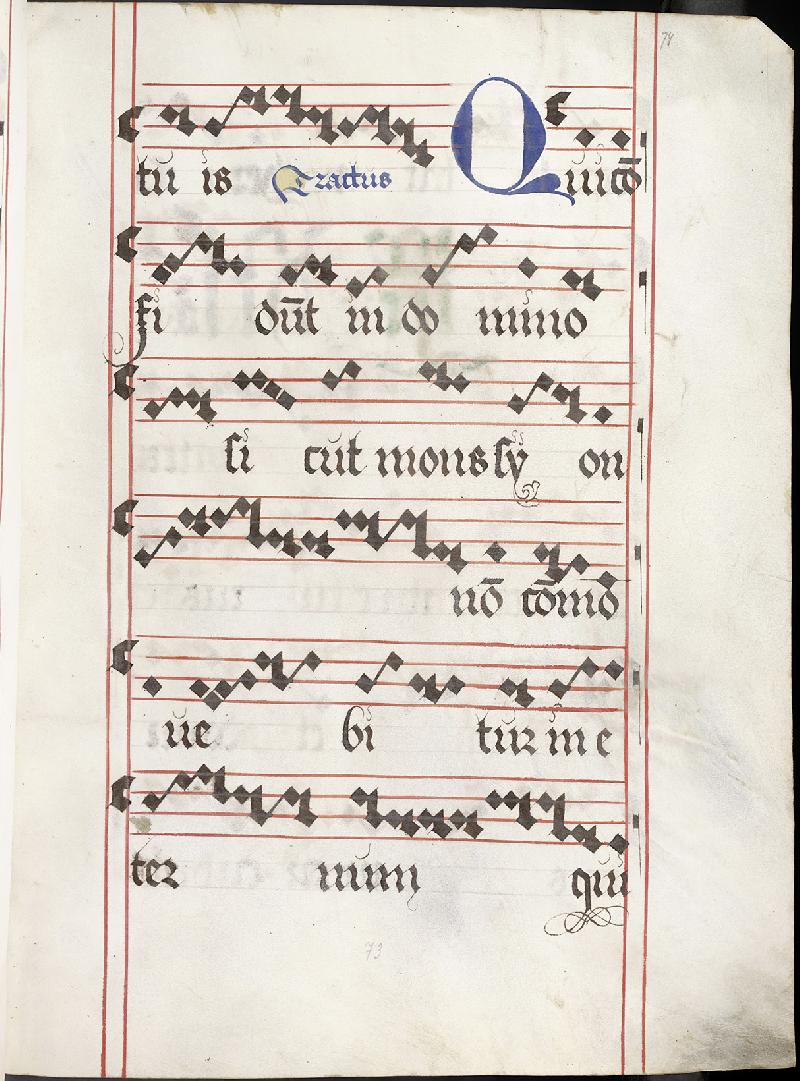 74
tu is Tractus Qui cō
fi dūt in do mino
si cut mons sy on
nō cōmō
ue bi tur in e
ter num qui
73